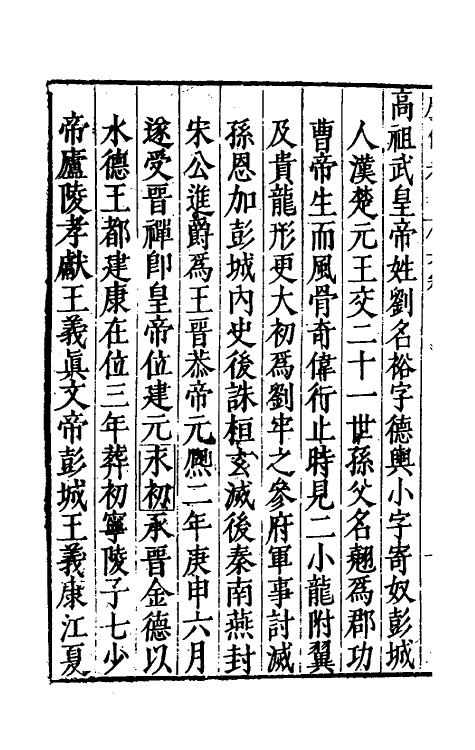 高祖武皇帝姓劉名裕字德輿小字寄奴彭城
人漢楚元王交二十一世孫父名翹爲郡功
曹帝生而風骨奇偉行止時見二小龍附翼
及貴龍形更大初爲劉牢之參府軍事討滅
孫恩加彭城內史後誅桓玄滅後秦南燕封
宋公進爵爲王晉恭帝元熈二年庚申六月
遂受晉禪卽皇帝位建元永初承晉金德以
水德王都建康在位三年葬初寧陵子七少
帝廬陵孝獻王義眞文帝彭城王義康江夏